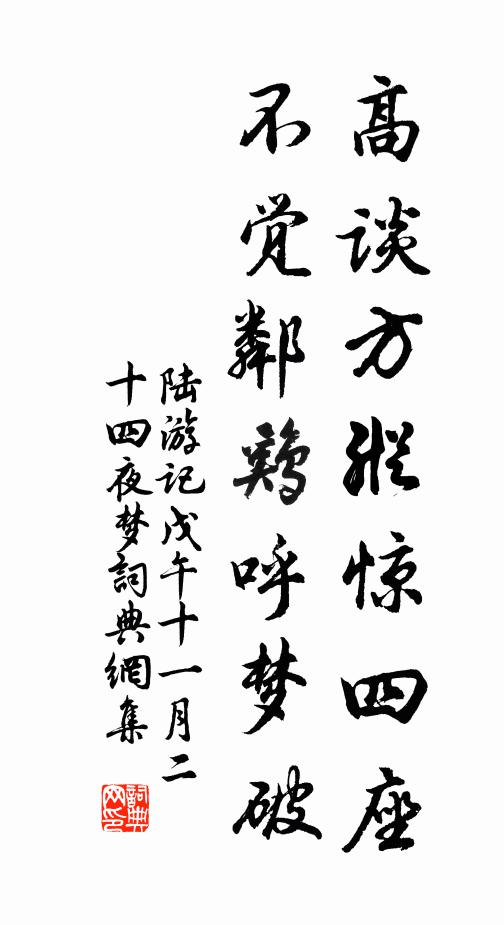 高谈方纵惊四座
不觉鄰鷄呼梦破
陆游记戊午十一月二
十四夜梦詞典網集
詞典
网印